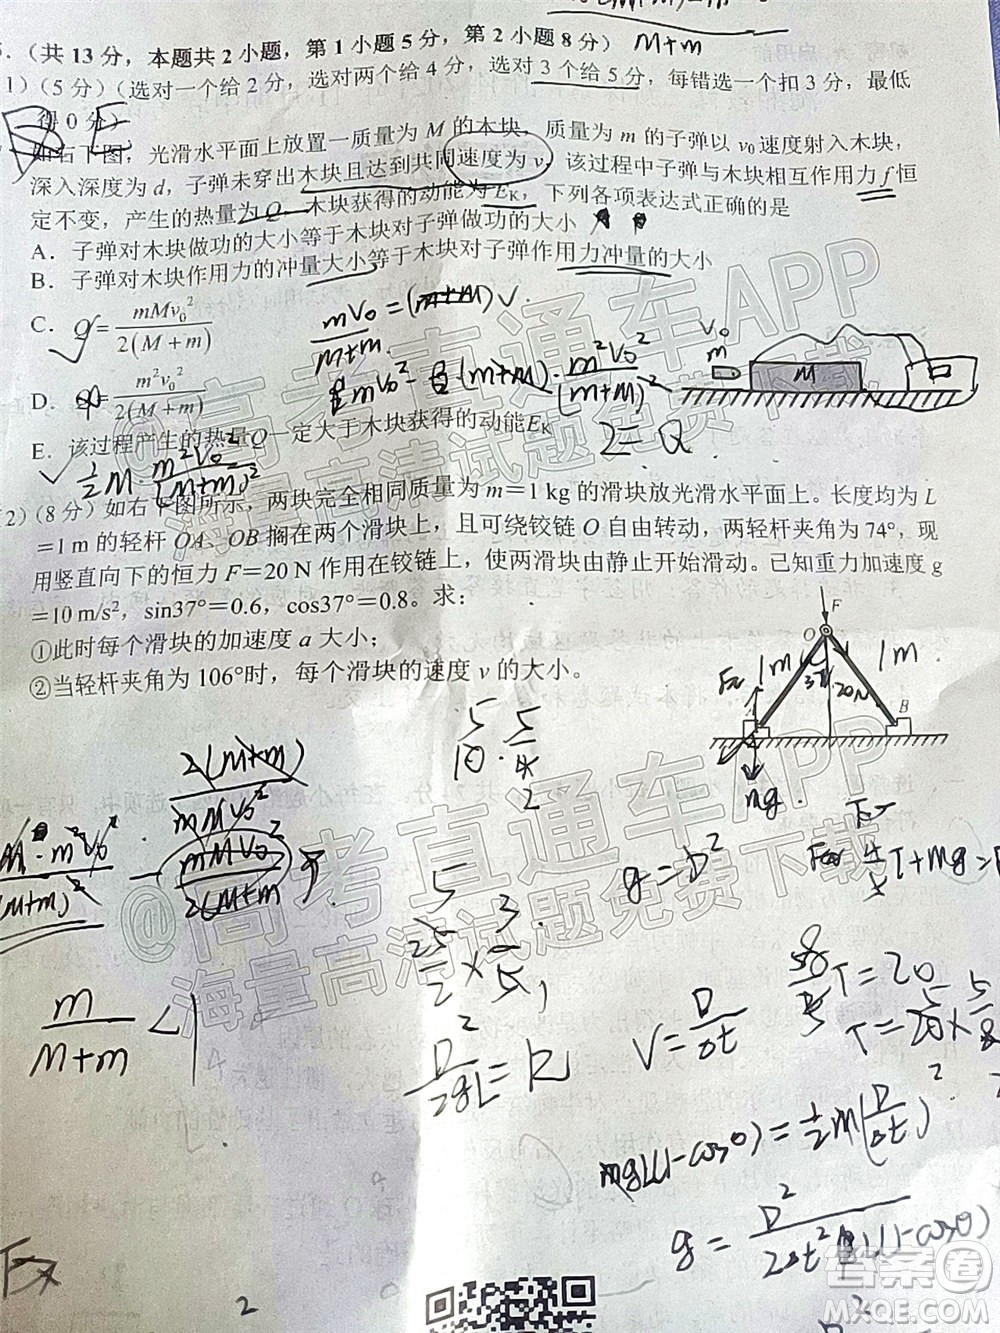 M+m
（共 13 分，本题共 2 小题，第 1 小题 5 分，第 2 小题 8 分）
1)（5 分）（选对一个给 2 分，选对两个给 4 分，选对 3 个给 5 分，每错选一个扣 3 分，最低
得 0 分）
如右下图，光滑水平面上放置一质量为 M 的木块，质量为 m 的子弹以 v₀ 速度射入木块，
深入深度为 d，子弹未穿出木块且达到共同速度为 v，该过程中子弹与木块相互作用力 f 恒
定不变，产生的热量为 Q，木块获得的动能为 E_K，下列各项表达式正确的是
A．子弹对木块做功的大小等于木块对子弹做功的大小
B．子弹对木块作用力的冲量大小等于木块对子弹作用力冲量的大小
C．Q=mMv₀²/2(M+m)
mv₀=(m+M)v
mv₀/M+m
D．Q=m²v₀²/2(M+m)
E．该过程产生的热量Q一定大于木块获得的动能E_K
v₀
m
M
2)（8 分）如右下图所示，两块完全相同质量为 m＝1 kg 的滑块放光滑水平面上。长度均为 L
＝1 m 的轻杆 OA、OB 搁在两个滑块上，且可绕铰链 O 自由转动，两轻杆夹角为 74°，现
用竖直向下的恒力 F＝20 N 作用在铰链上，使两滑块由静止开始滑动。已知重力加速度 g
＝10 m/s²，sin37°＝0.6，cos37°＝0.8。求：
①此时每个滑块的加速度 a 大小；
②当轻杆夹角为 106°时，每个滑块的速度 v 的大小。
F
O
1m
1m
37°
20N
B
mg
2(M+m)/mMv₀²
mMv₀²/2(M+m)
m/M+m <1
g=D²
T=20
V=D/Δt
mgL(1-cosθ)=½m(D/Δt)
2
2
高考直通车APP
@高考直通车APP
海量高清试题免费下载
答案圈
MXQE.COM